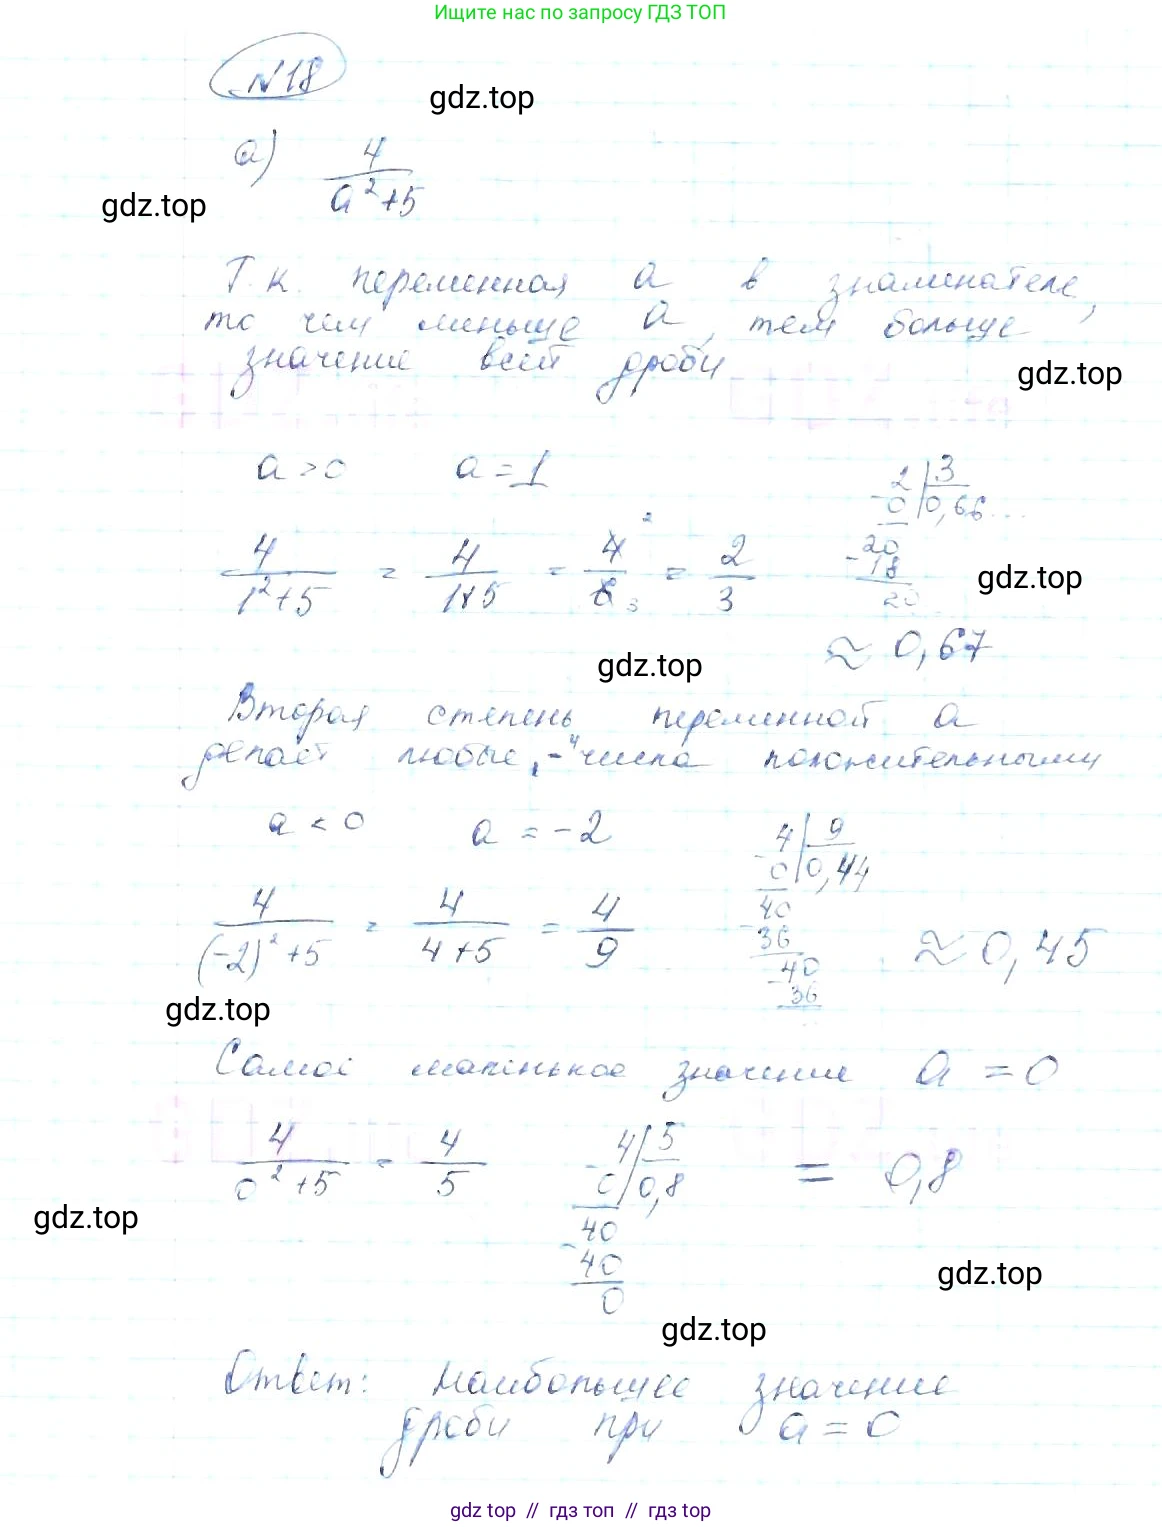 Ищите нас по запросу ГДЗ ТОП
№18
gdz.top
а) 4/(a²+5)
gdz.top
Т.к. переменная a в знаменателе,
то чем меньше a, тем больше
значение всей дроби
gdz.top
a > 0 a = 1
2 | 3
-0 | 0,66...
4/(1²+5) = 4/(1+5) = 4/6 = 2/3
2
3
20
-18
20
gdz.top
≈ 0,67
gdz.top
Вторая степень переменной a
делает любые „-“ числа положительными
a < 0 a = -2
4 | 9
-0 | 0,44
4/((-2)²+5) = 4/(4+5) = 4/9
40
-36
-40
36
≈ 0,45
gdz.top
Самое маленькое значение a = 0
4/(0²+5) = 4/5
4 | 5
-0 | 0,8
40
-40
0
= 0,8
gdz.top
gdz.top
gdz.top
Ответ: Наибольшее значение
дроби при a = 0
gdz top // гдз топ // гдз top